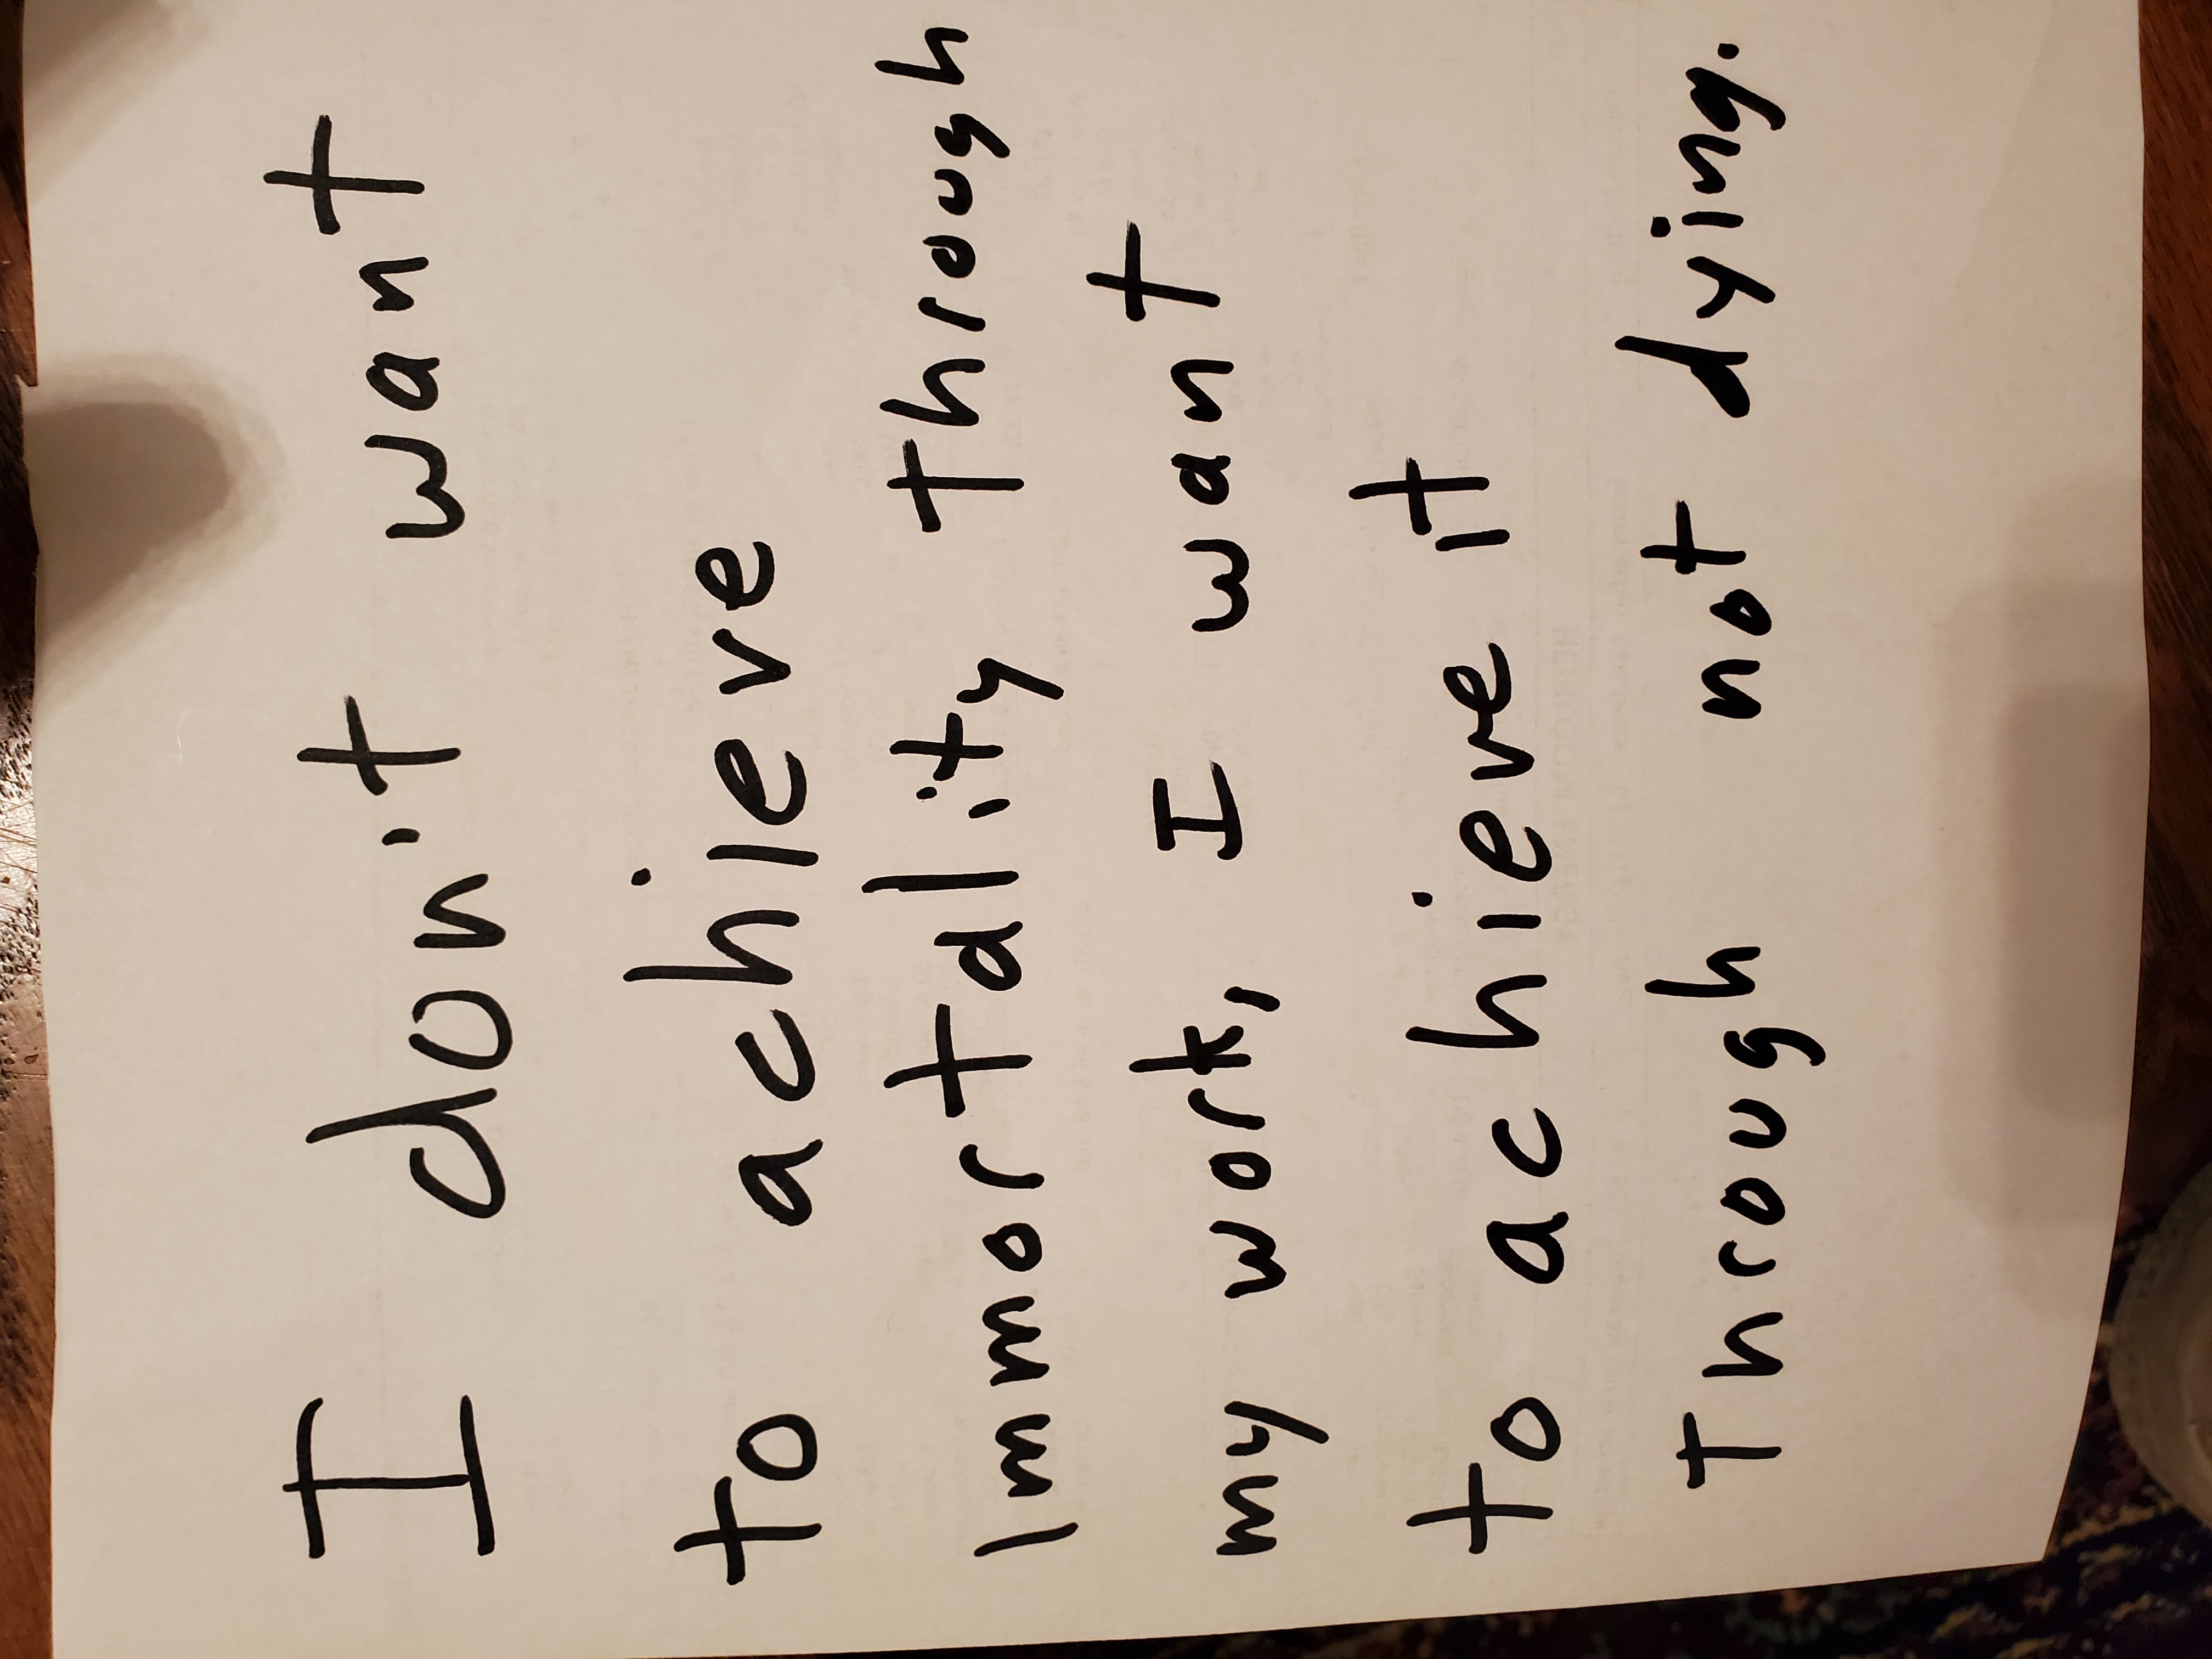 I don't want
to achieve
immortality through
my work, I want
to achieve it
through not dying.